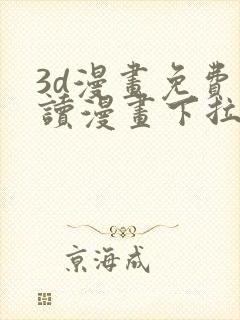 3d漫畫免費
讀漫畫下拉
京海成